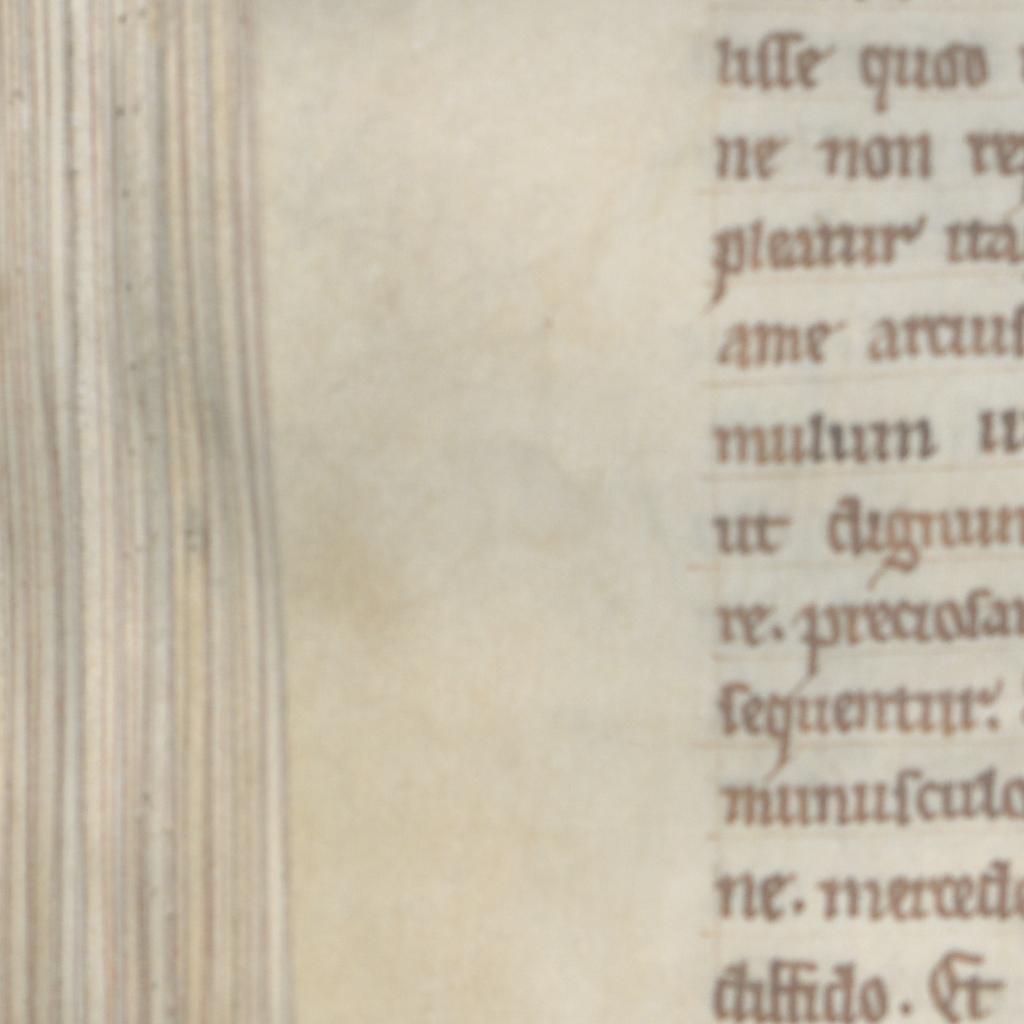 uisse quod
ne non re
pleatur ita
ame arcius
mulum u
ut dignum
re. preciosam
sequentur.
munusculo
ne. mercede
diffido. Et